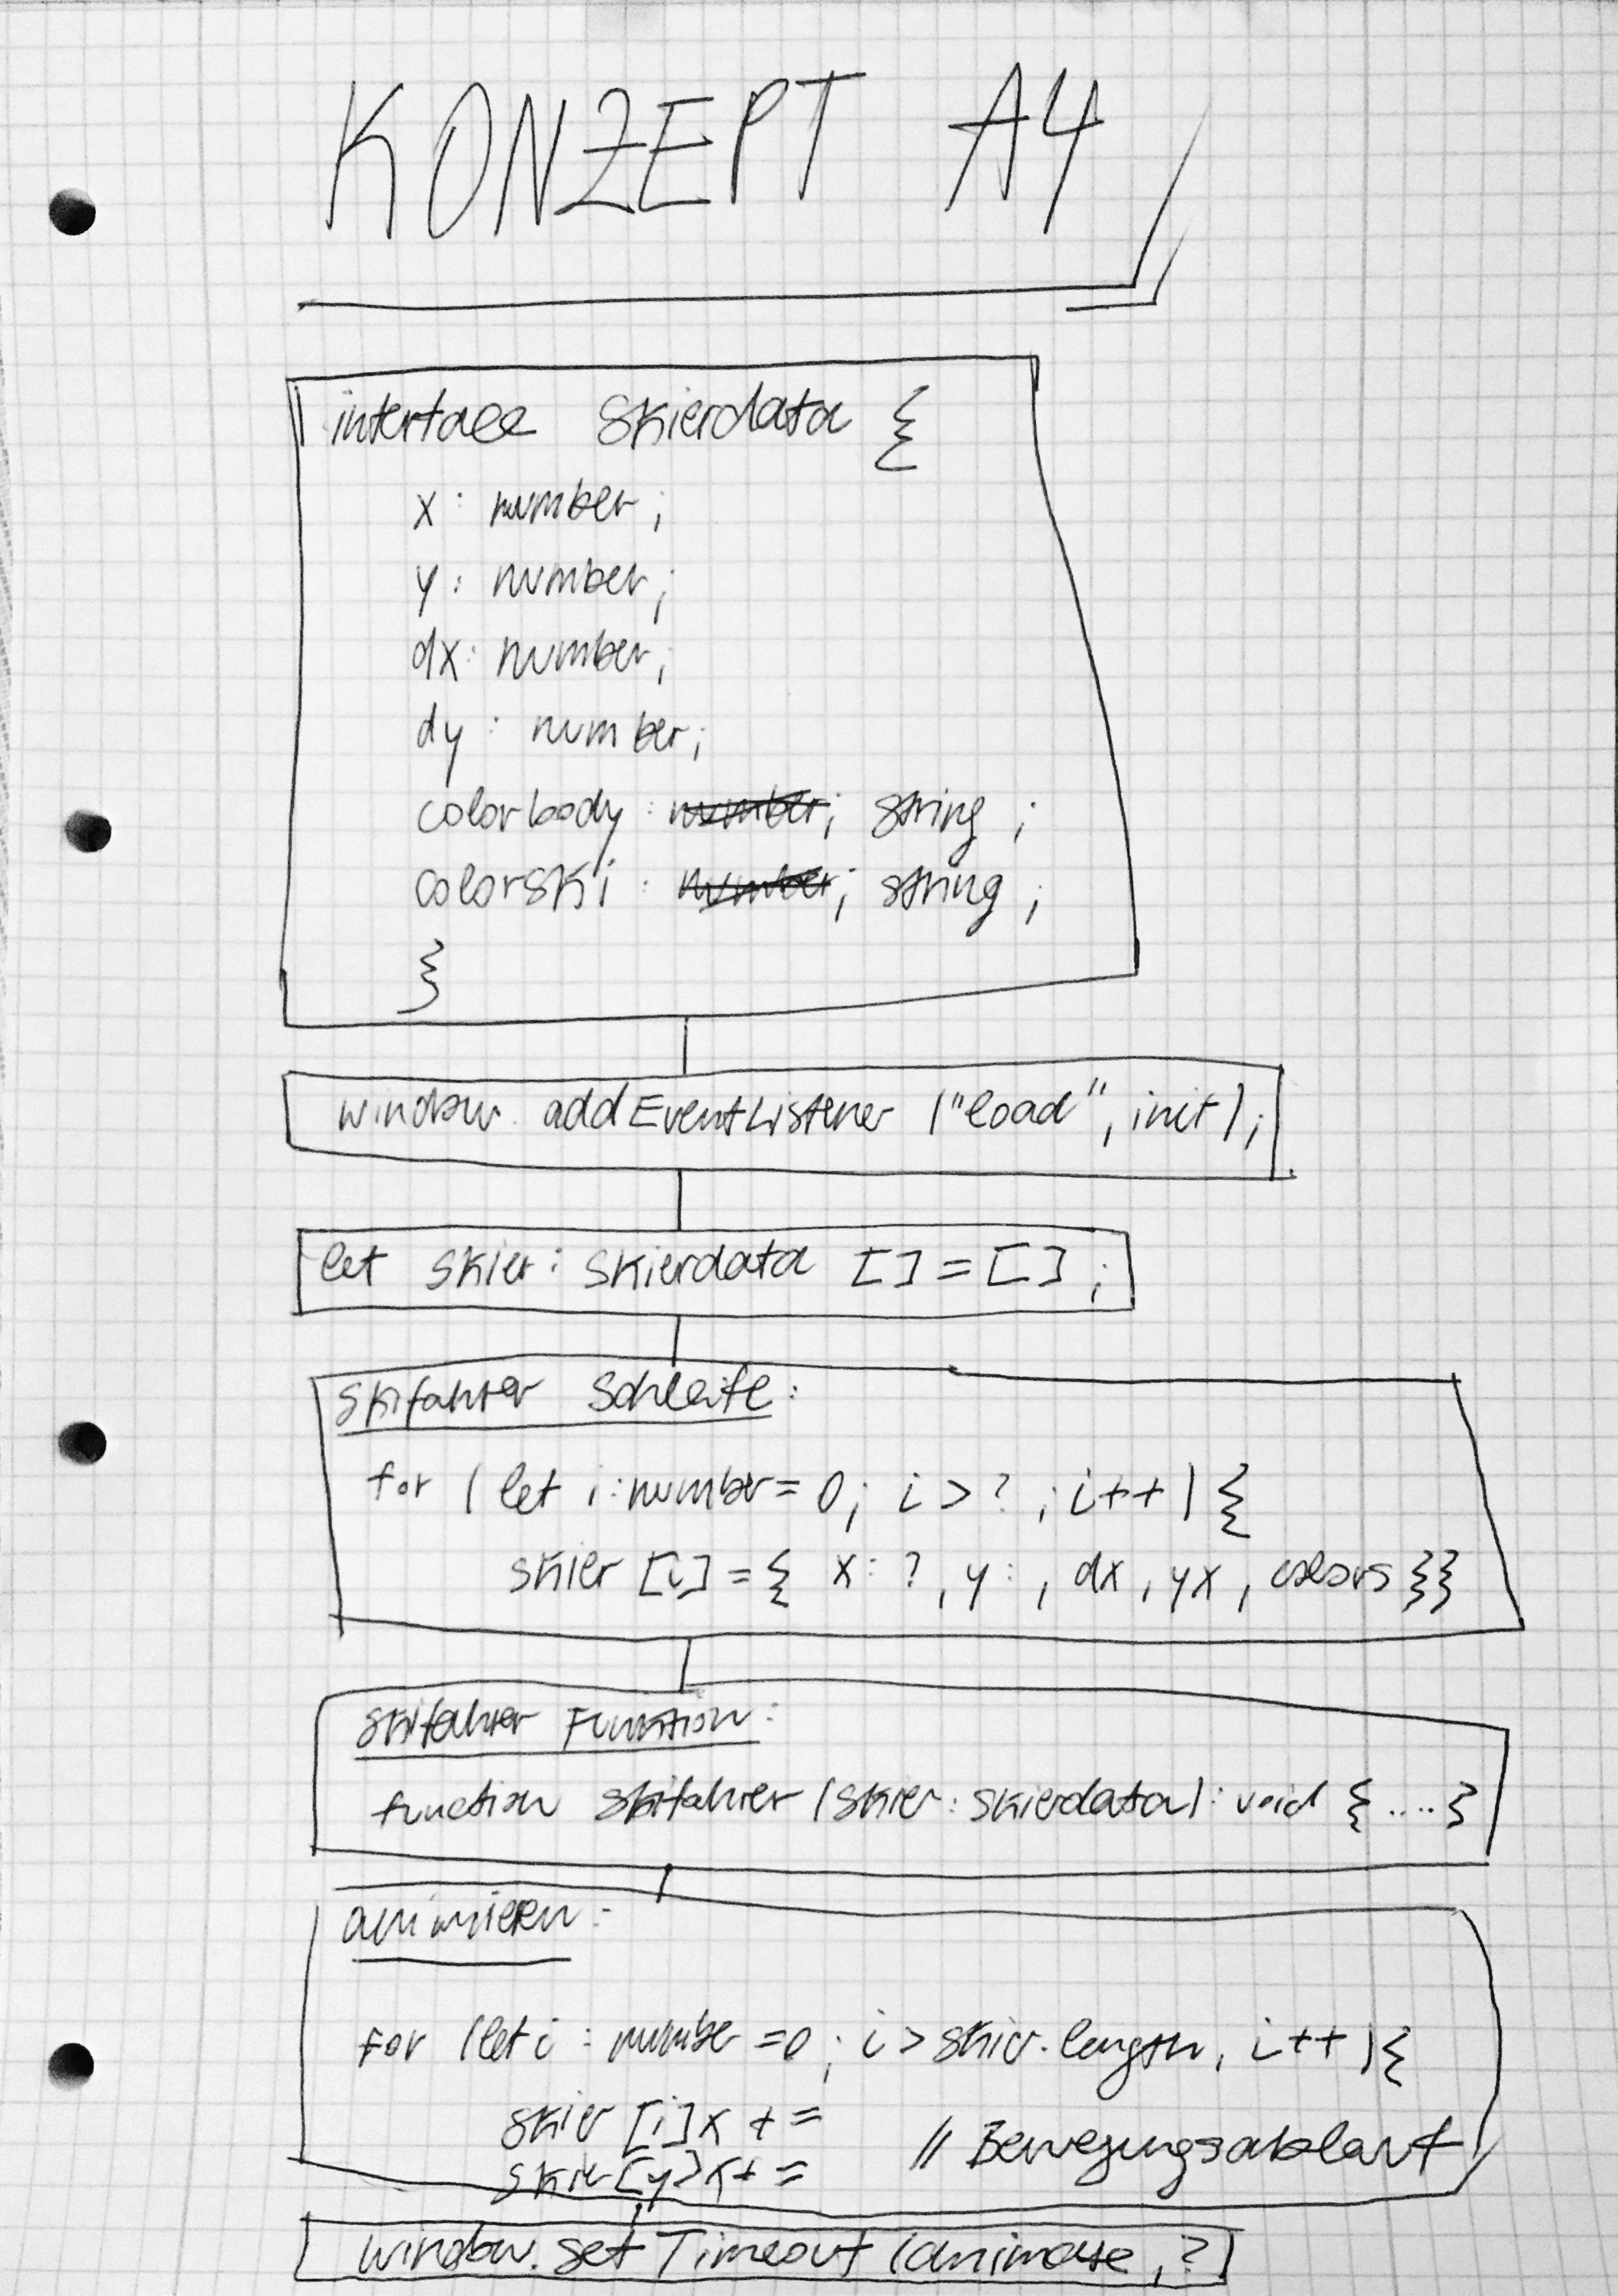 KONZEPT A4
interface Skierdata {
x : number;
y : number;
dx : number;
dy : number;
colorbody : number; string ;
colorski : number; string ;
}
window.addEventListener ("load", init);
let skier : Skierdata [] = [] ;
Skifahrer Schleife :
for ( let i : number = 0; i > ? ; i++ ) {
skier [i] = { x : ? , y : , dx , yx , colors }}
Skifahrer Funktion :
function skifahrer (skier : Skierdata) : void { .... }
animieren :
for (let i : number = 0 ; i > skier.length, i++ ) {
skier [i] x + =
// Bewegungsablauf
skier [y] x + =
window.setTimeout (animate , ?)